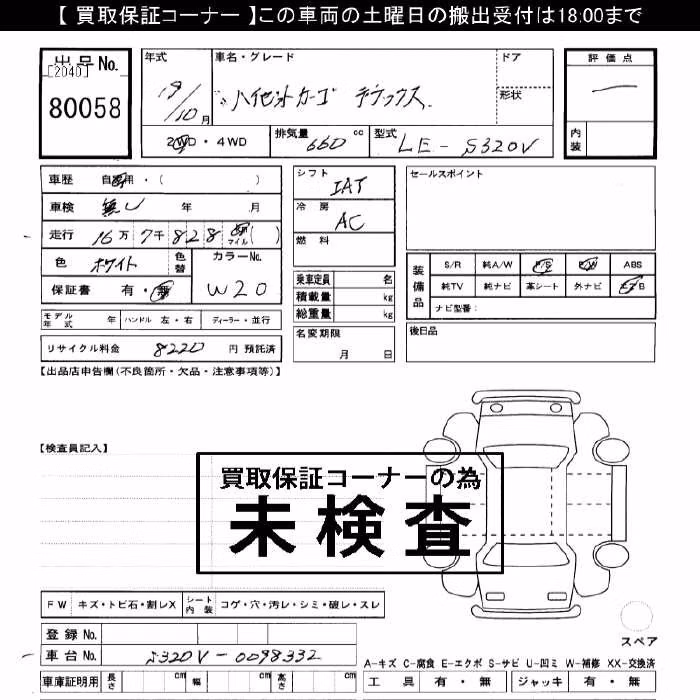 【 買取保証コーナー 】この車両の土曜日の搬出受付は18:00まで
出品No.
[2040]
80058
年式 車名・グレード ドア
19/10月 ハイゼットカーゴ デラックス 形状
2WD・4WD 排気量 660 cc 型式 LE-S320V
評価点
—
内装
車歴 自家用・( )
車検 無し 年 月
走行 16万7千828 km マイル ( )
色 ホワイト 色替 カラーNo.
保証書 有・無 W20
モデル年式 年 ハンドル 左・右 ディーラー・並行
リサイクル料金 8220 円 預託済
シフト IAT
冷房 AC
燃料
乗車定員 名
積載量 kg
総重量 kg
名変期限
月 日
セールスポイント
装備品 S/R 純A/W P/S P/W ABS
純TV 純ナビ 革シート 外ナビ エアB
ナビ型番:
後日品
【出品店申告欄(不良箇所・欠品・注意事項等)】
【検査員記入】
買取保証コーナーの為
未検査
FW キズ・トビ石・割レX シート内装 コゲ・穴・汚レ・シミ・破レ・スレ
登録 No.
車台 No. S320V-0098332
車庫証明用 長さ cm 幅 cm 高さ cm
スペア
A-キズ C-腐食 E-エクボ S-サビ U-凹ミ W-補修 XX-交換済
工具 有・無 ジャッキ 有・無